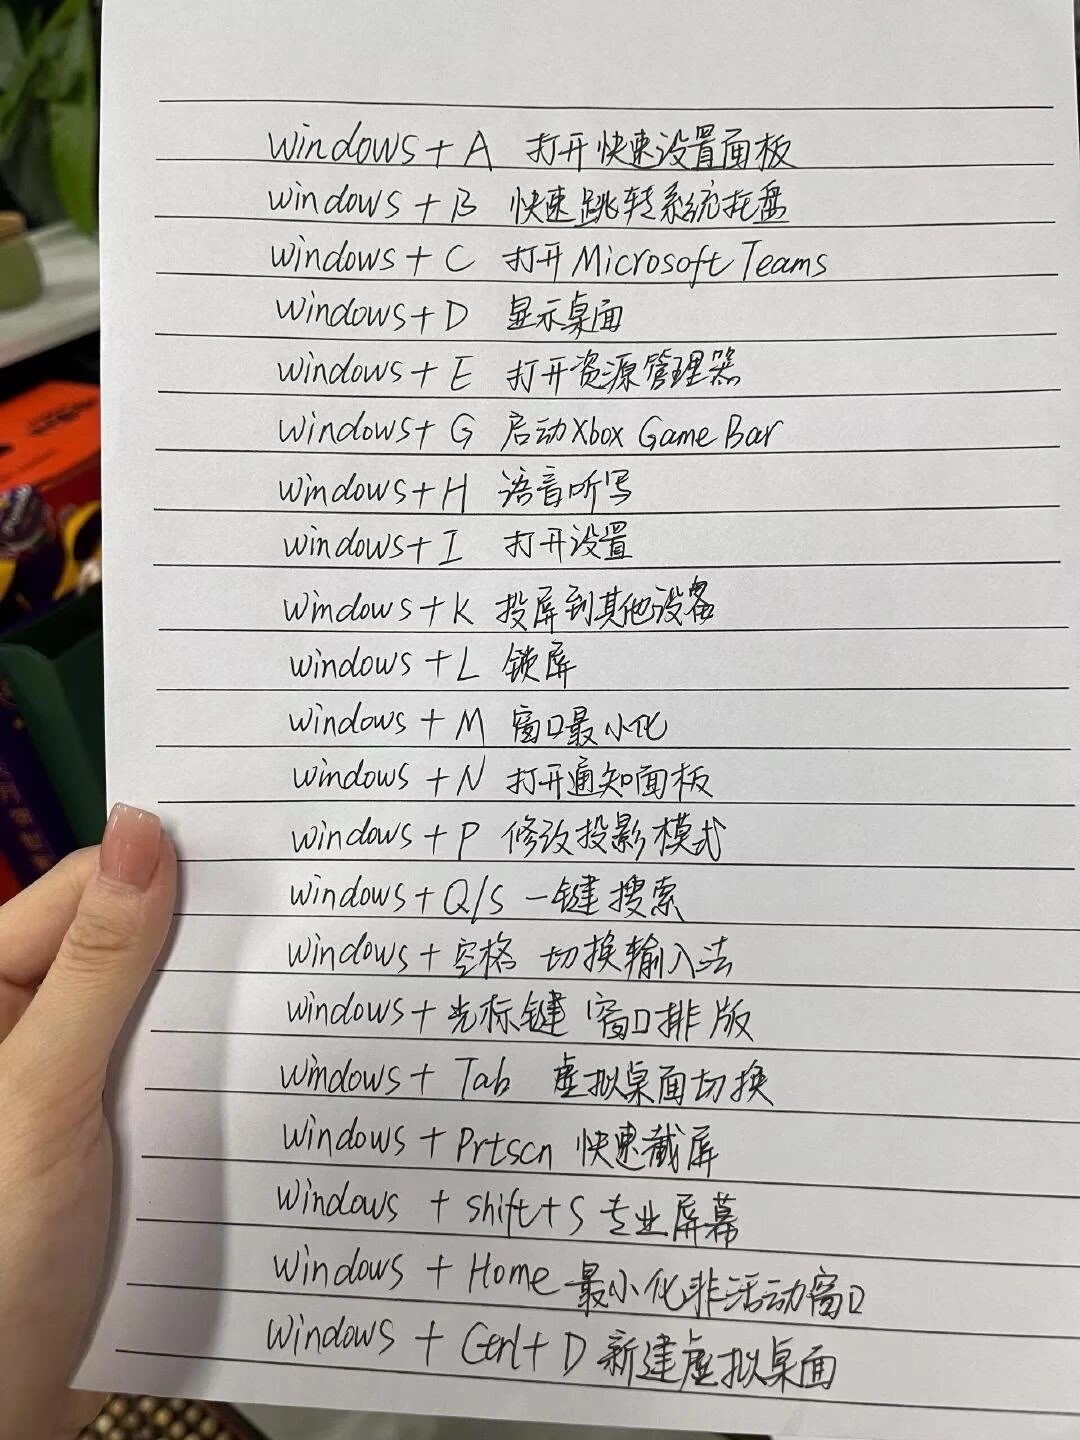 Windows + A 打开快速设置面板
Windows + B 快速跳转系统托盘
Windows + C 打开Microsoft Teams
Windows + D 显示桌面
Windows + E 打开资源管理器
Windows + G 启动Xbox Game Bar
Windows + H 语音听写
Windows + I 打开设置
Windows + K 投屏到其他设备
Windows + L 锁屏
Windows + M 窗口最小化
Windows + N 打开通知面板
Windows + P 修改投影模式
Windows + Q/S 一键搜索
Windows + 空格 切换输入法
Windows + 光标键 窗口排版
Windows + Tab 虚拟桌面切换
Windows + Prtscn 快速截屏
Windows + Shift + S 专业屏幕
Windows + Home 最小化非活动窗口
Windows + Ctrl + D 新建虚拟桌面